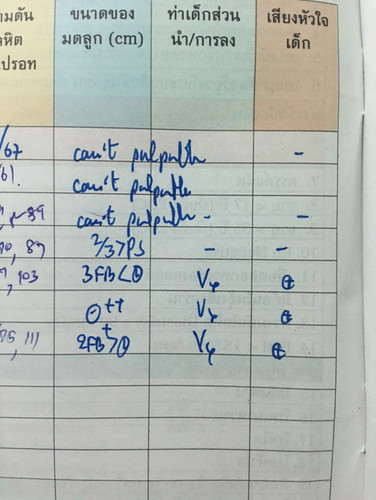 ามดัน ขนาดของ ท่าเด็กส่วน เสียงหัวใจ
ลหิต มดลูก (cm) นำ/การลง เด็ก
ปรอท
/67 can't palpable -
/61. can't palpable
89 can't palpable - -
89 2/3>PS - -
, 103 3FB<⊖ Vx ⊕
⊖++ Vx ⊕
, 111 2FB>⊖ Vx ⊕